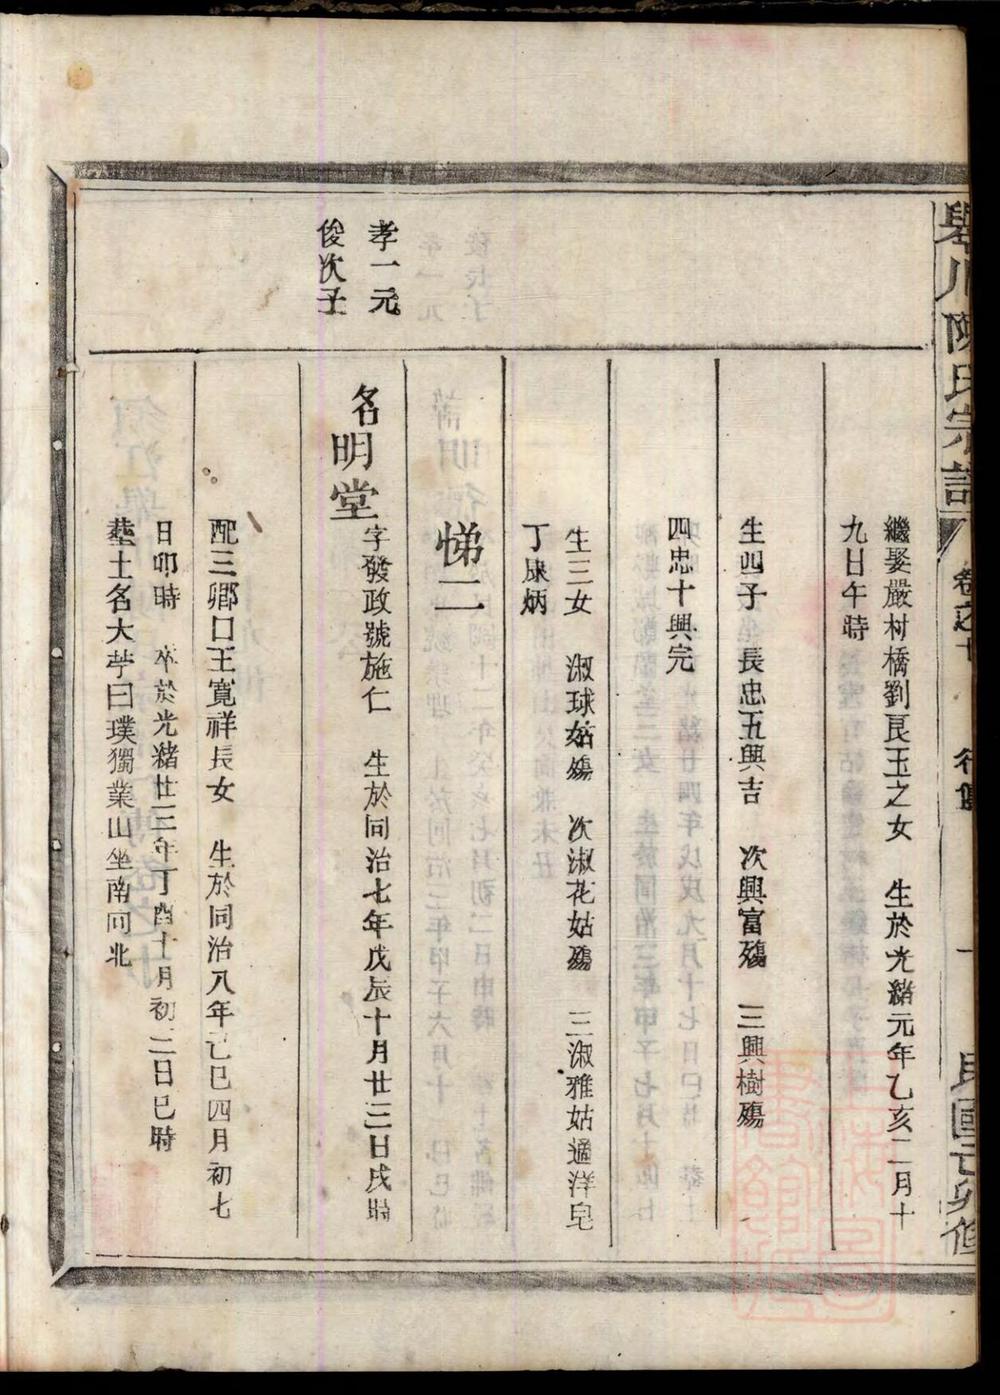 川陳氏宗譜
卷之十
行傳
一
民國己卯修
繼娶嚴村橋劉艮玉之女 生於光緒元年乙亥二月十
九日午時
生四子 長忠五興吉 次興富殤 三興樹殤
四忠十興完
生三女 淑球姑殤 次淑花姑殤 三淑雅姑適洋皂
丁炳
孝一元
俊次子
悌二
名明堂
字發政號施仁 生於同治七年戊辰十月廿三日戌時
配三鄉口王寬祥長女 生於同治八年己巳四月初七
日卯時 卒於光緒廿三年丁酉十月初二日巳時
塟土名大苧曰璞獨業山坐南向北